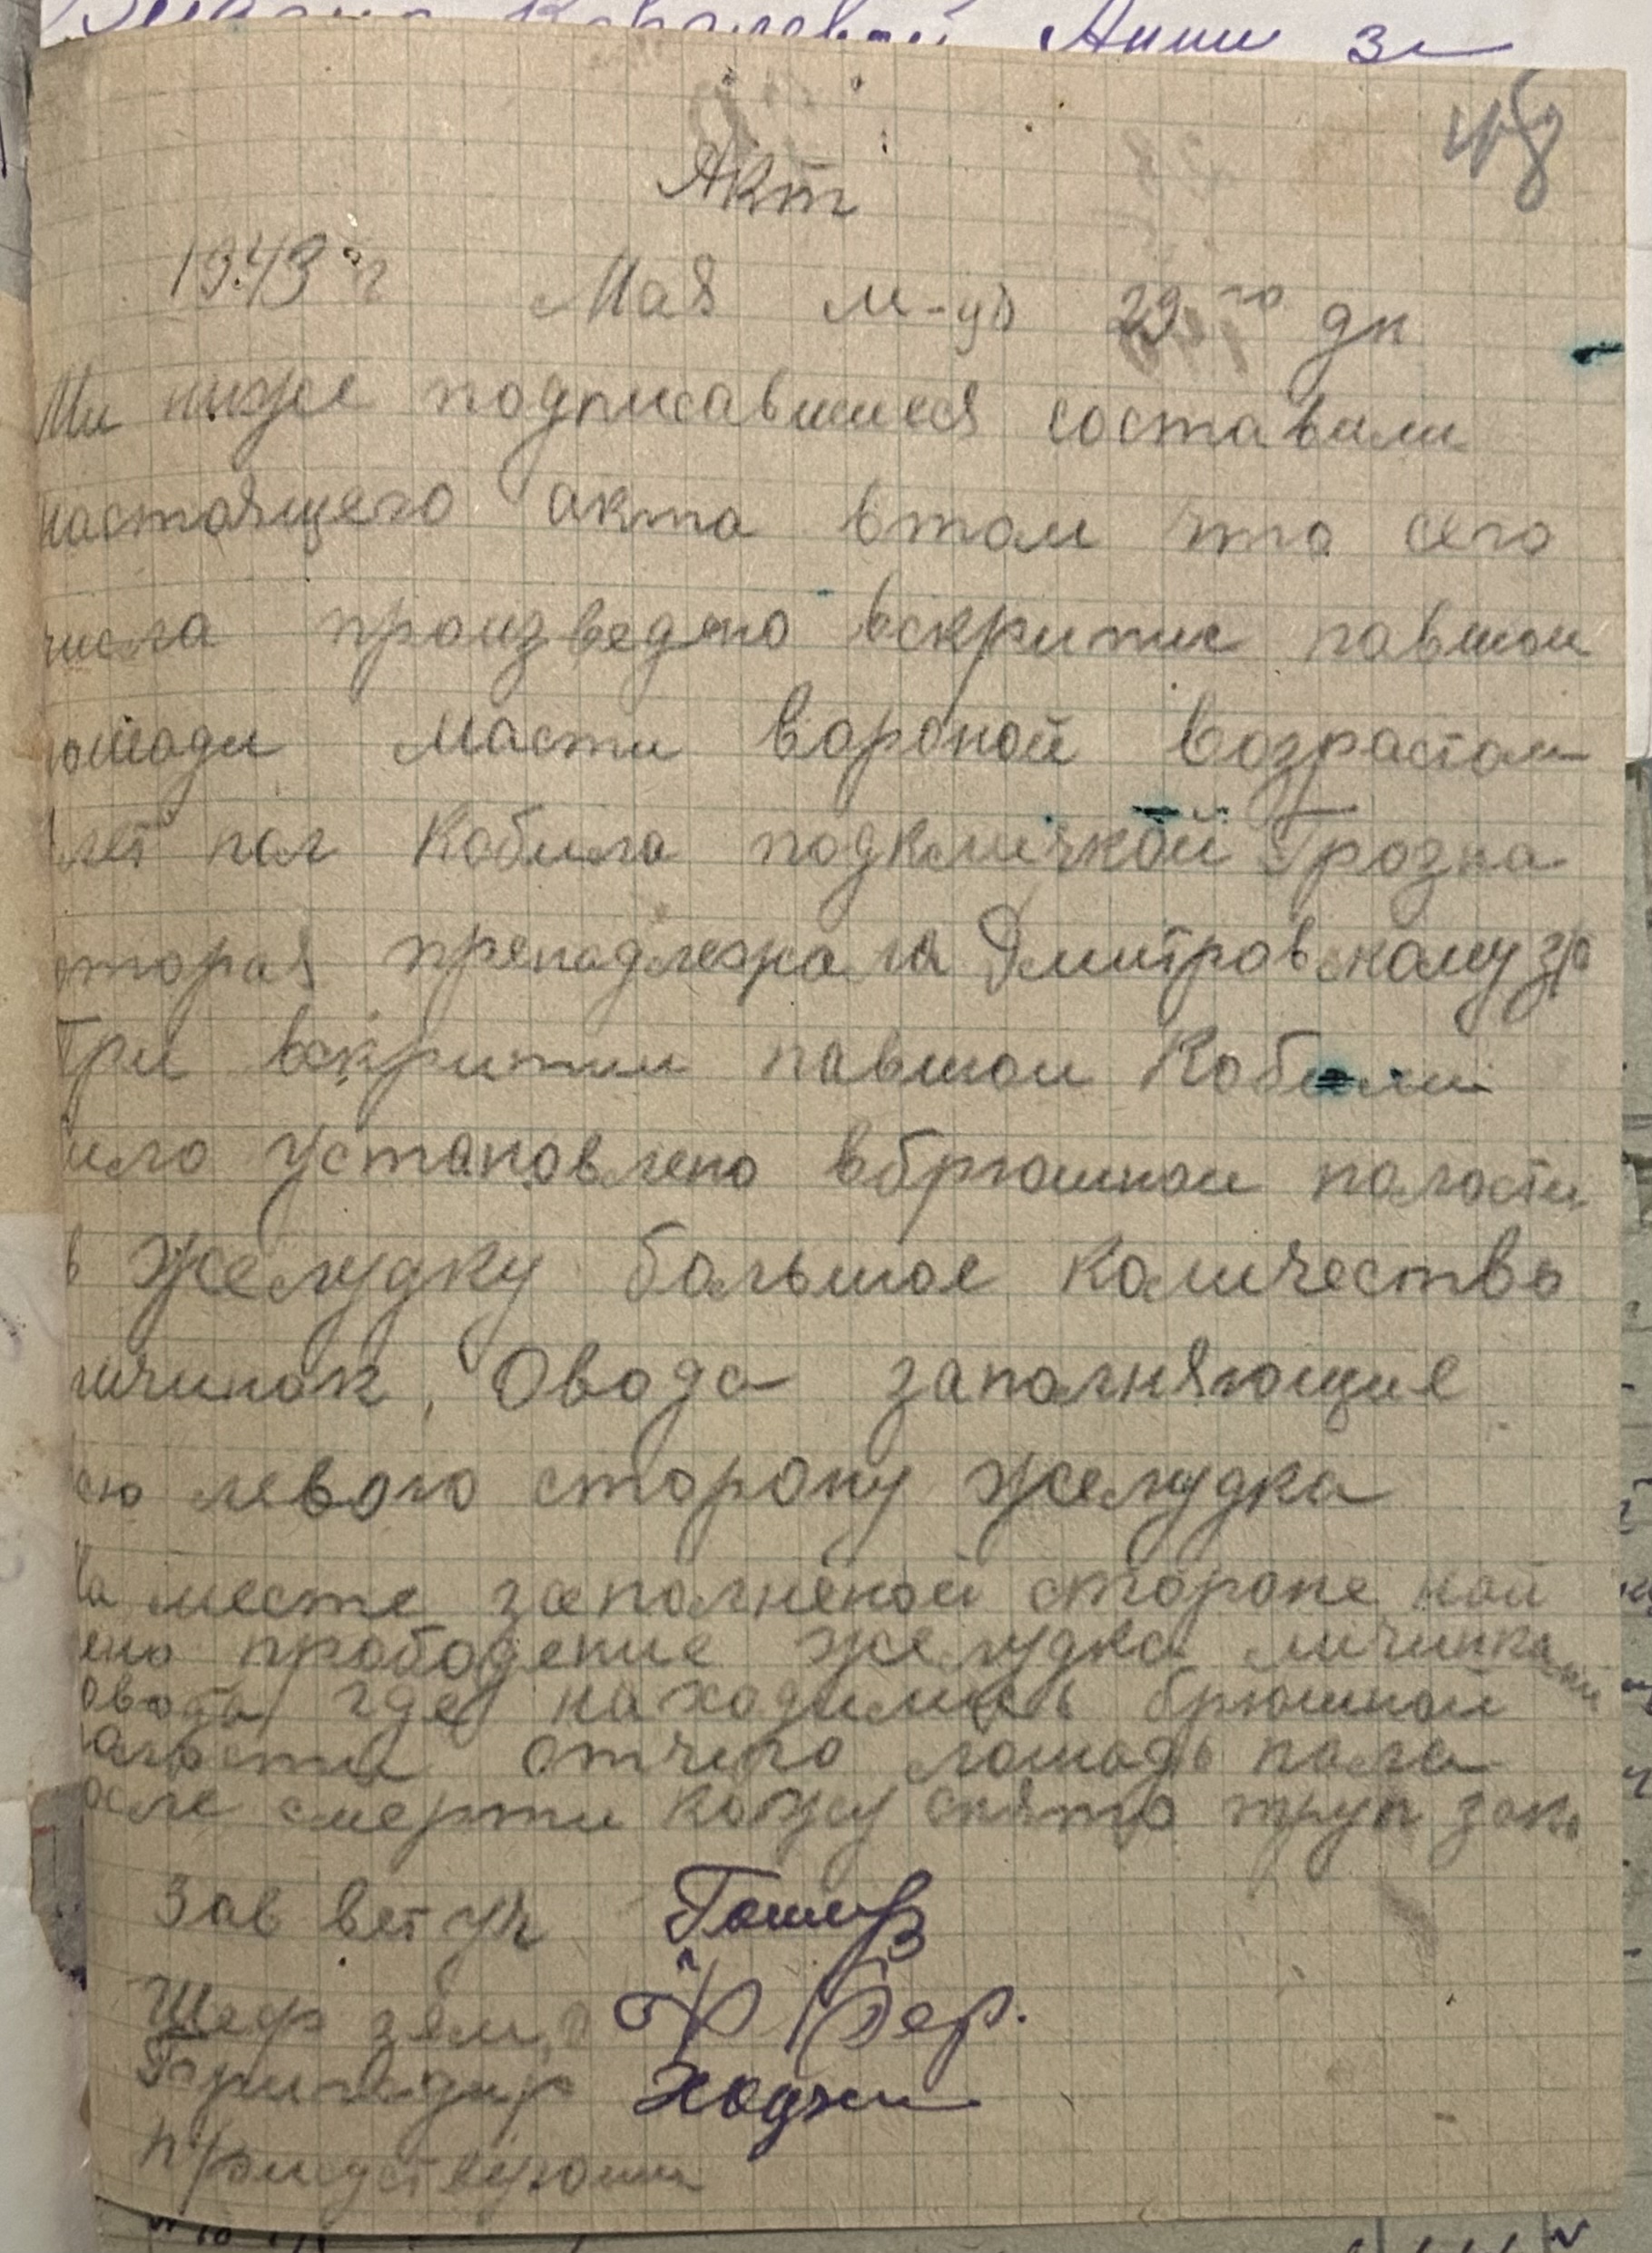 Акт
1943 г Мая м-ца 29го дн
Ми ниже подписавшиеся составили
настоящего акта втом что сего
числа произведено вскритие павшои
лошади масти вороной возрастом
лет пол Кобила подкличкой Грозна
оторая препадлежала Дмитровскому
При вскритии павшои Кобили
ило установлено вбрюшнои полости
в желудку большое количество
личинок, Овода заполняющие
сю левою сторону желудка
На месте заполненой стороне най
ено прободение желудка личинками
овода где находились брюшнои
алости отчего лошадь пала
осле смерти кожу снято труп зак
Зав вет уч
Шеф зем.
Бригадир Ходжи